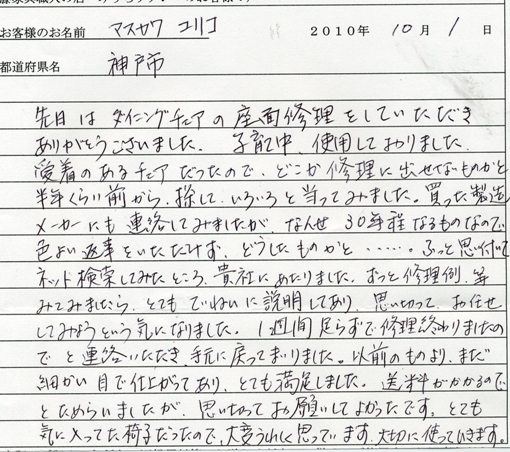 お客様のお名前 マスカワ ユリコ 2010年 10月 1日
都道府県名 神戸市
先日は ダイニングチェアの座面修理をしていただき
ありがとうございました。子育て中、使用しておりました
愛着のあるチェアだったので、どこか修理に出せないものかと
半年くらい前から、探して、いろいろと当ってみました。買った製造
メーカーにも連絡してみましたが、なんせ30年程なるものなので
色よい返事をいただけず、どうしたものかと……。ふっと思い付いて
ネット検索してみたところ、貴社にあたりました。ずっと修理例、等
みてみましたら、とても ていねいに説明してあり、思い切って、お任せ
してみようという気になりました。1週間足らずで修理終わりましたの
でと連絡いただき、手元に戻ってまいりました。以前のものより、まだ
細かい目で仕上がってあり、とても満足しました。送料がかかるので
とためらいましたが、思い切ってお願いしてよかったです。とても
気に入ってた椅子だったので、大変うれしく思っています。大切に使っていきます。